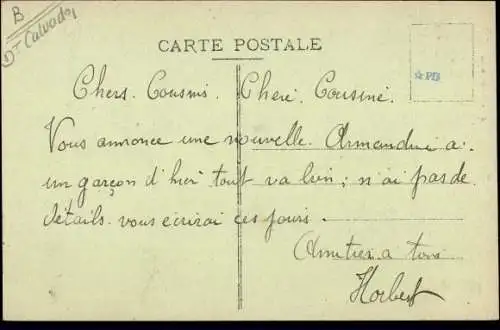 B
Dt Calvados
CARTE POSTALE
☆ PB
Chers. Cousins. Cheré. Cousine.
Vous annonce une nouvelle. Armandine a
un garçon d'hier tout va bien; n'ai pas de
détails. vous écrirai ces jours.
Amities a tous